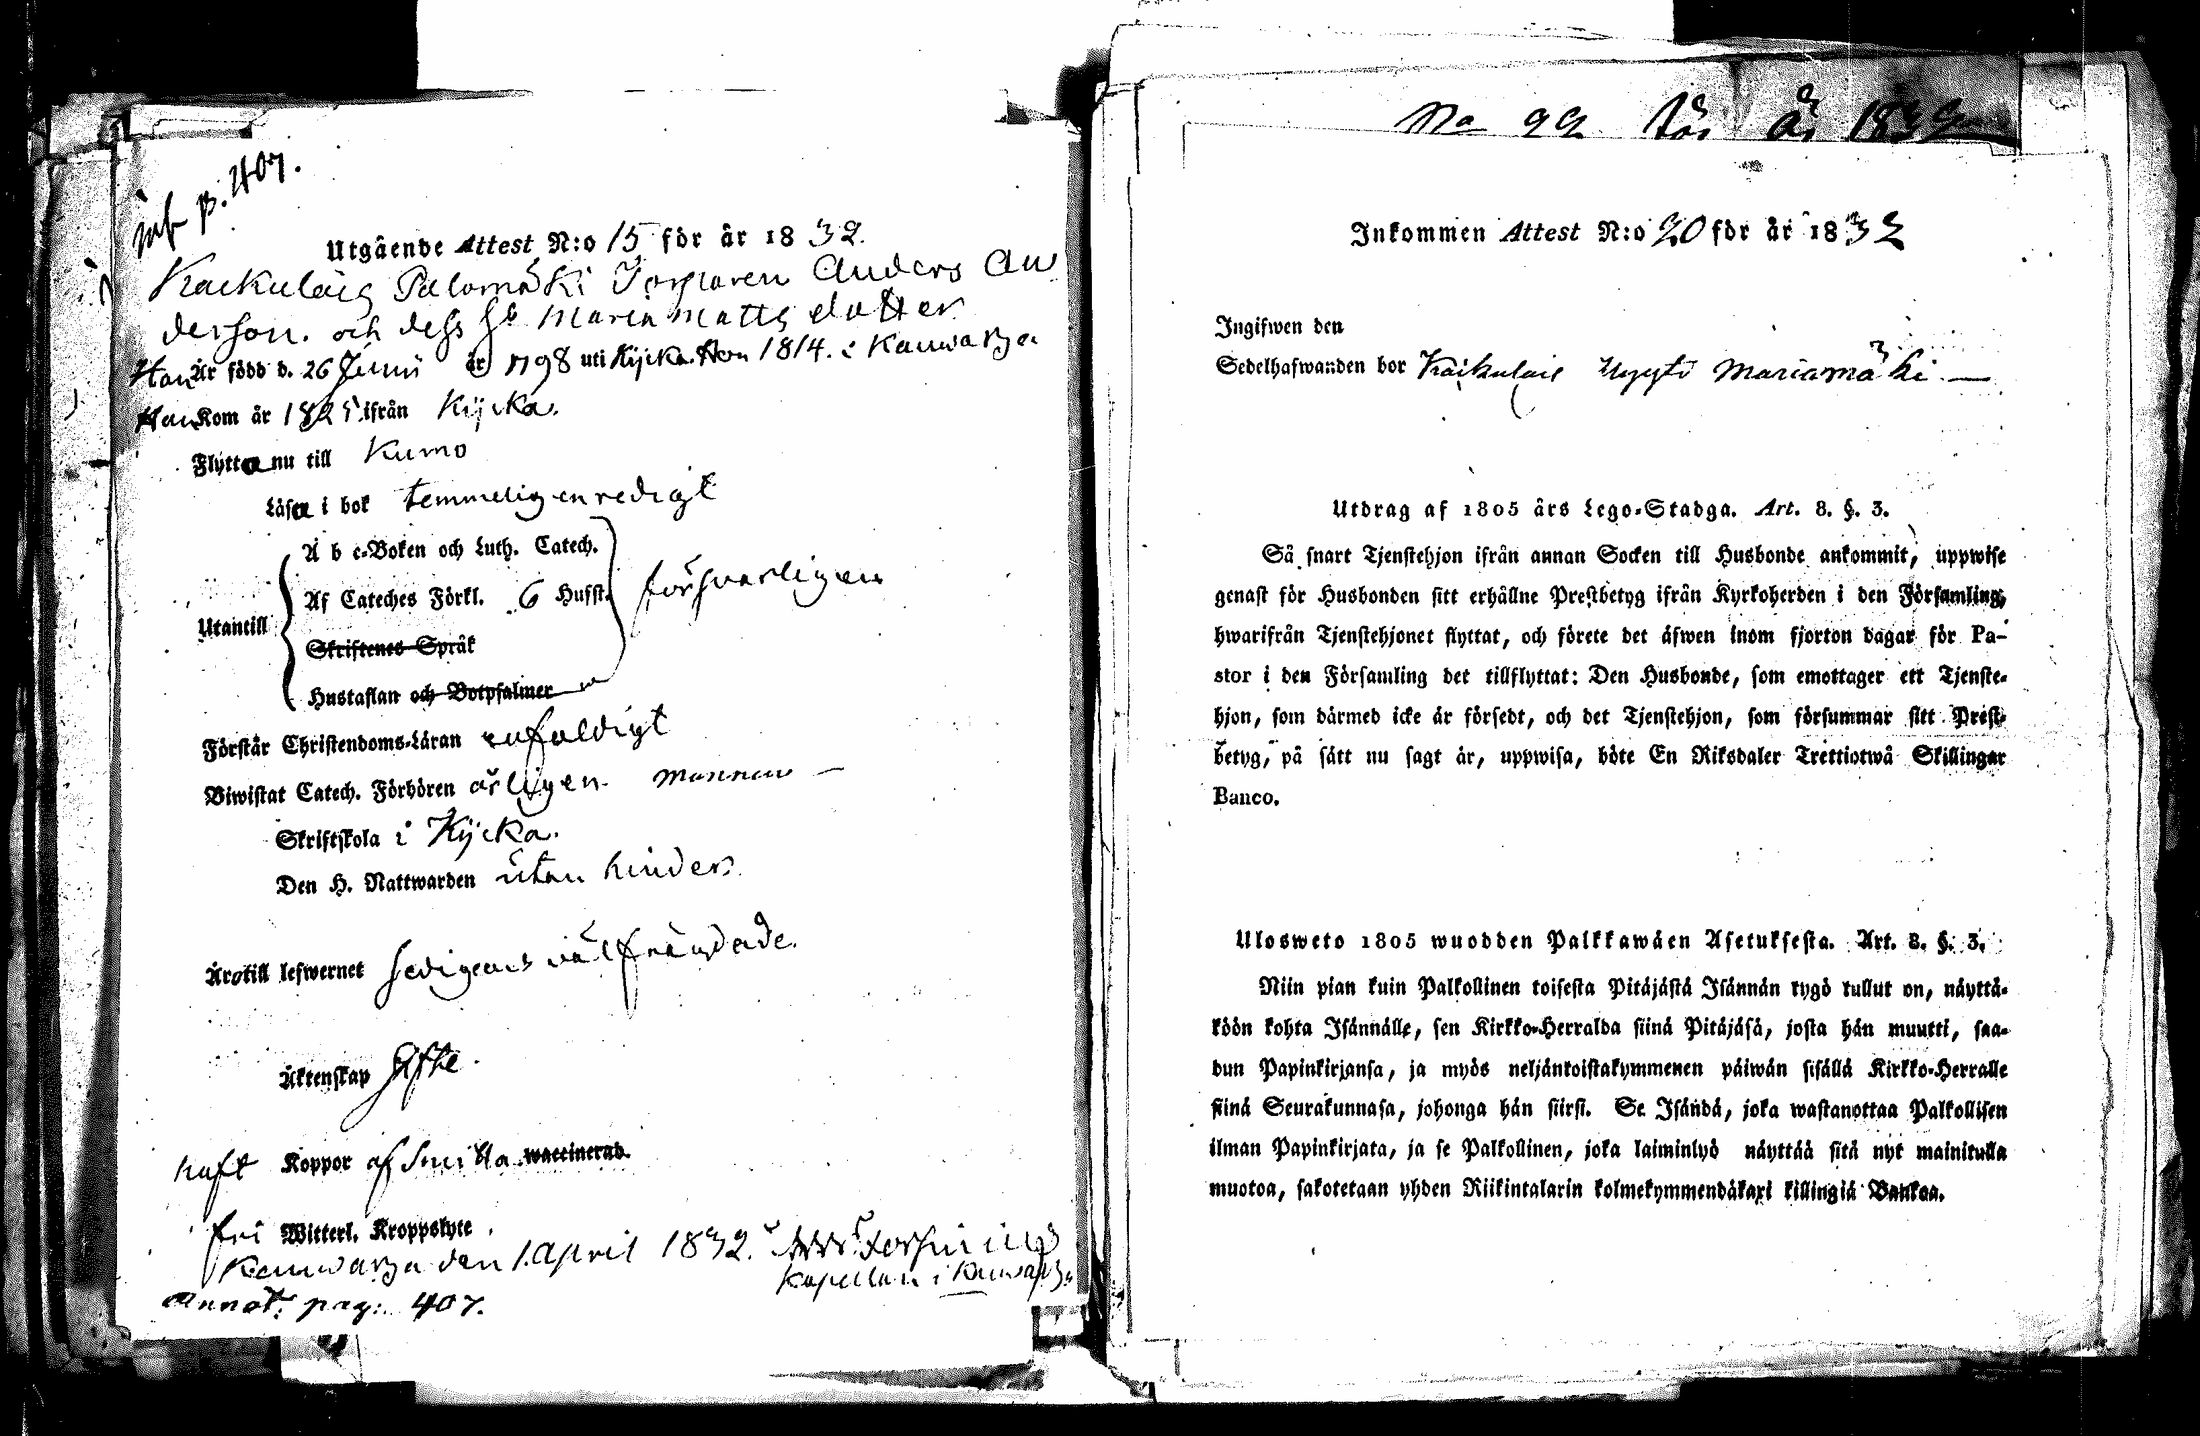 inf p. 407.
Utgående Attest N:o 15 för år 1832.
Kaekulais Palomäki Torparen Anders An
derson. och dess h. Maria Matts dotter
Han Är född d. 26 Junii år 1798 uti Kjicka. Hon 1814. i Kauwatza
Han Kom år 1825 ifrån Kjicka.
Flytta nu till Kumo
Läsa i bok temmelig enredigt
A b c-Boken och Luth. Catech.
Af Cateches Förkl. 6 Hufst. försvarligen
Utantill
Skriftenes Språk
Hustaflan och Botpsalmer
Förstår Christendoms-Läran enfaldigt
Biwistat Catech. Förhören årligen. mannen —
Skriftskola i Kjicka.
Den H. Nattwarden utan hinder.
Äro till lefwernet sedigens välfrängdade.
Äktenskap Gifte.
haft Koppor af Smitta waccinerad.
fri Witterl. Kroppslyte.
Kauwatza den 1. April 1832.
Kapellan i Kauwatza
Annot: pag: 407.
No 99 för år 1832
Inkommen Attest N:o 20 för år 1832
Ingifwen den
Sedelhafwanden bor Kaikulais Uyyti Mariamäki —
Utdrag af 1805 års Lego-Stadga. Art. 8. §. 3.
Så snart Tjenstehjon ifrån annan Socken till Husbonde ankommit, uppwise
genast för Husbonden sitt erhållne Prestbetyg ifrån Kyrkoherden i den Församling,
hwarifrån Tjenstehjonet flyttat, och förete det äfwen inom fjorton dagar för Pa-
stor i den Församling det tillflyttat: Den Husbonde, som emottager ett Tjenste-
hjon, som därmed icke är försedt, och det Tjenstehjon, som försummar sitt Prest-
betyg, på sätt nu sagt är, uppwisa, böte En Riksdaler Trettiotwå Skillingar
Banco.
Ulosweto 1805 wuodden Palkkawäen Asetuksesta. Art. 8. §. 3.
Niin pian kuin Palkollinen toisesta Pitäjästä Isännän tygö tullut on, näyttä-
köön kohta Isännälle, sen Kirkko-Herralda siinä Pitäjäsä, josta hän muutti, saa-
dun Papinkirjansa, ja myös neljäntoistakymmenen päiwän sisällä Kirkko-Herralle
siinä Seurakunnasa, johonga hän siirsi. Se Isändä, joka wastanottaa Palkollisen
ilman Papinkirjata, ja se Palkollinen, joka laiminlyö näyttää sitä nyt mainitulla
muotoa, sakotetaan yhden Riikintalarin kolmekymmendäkaxi killingiä Bankoa.